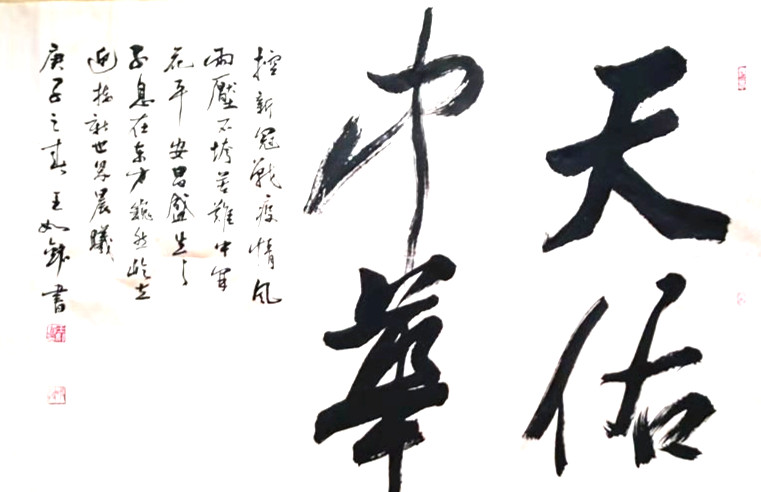 天佑
中華
控新冠戰疫情风
雨壓不垮苦難中開
花平安昌盛生々
不息在东方巍然屹立
迎接新世界晨曦
庚子之春王如書